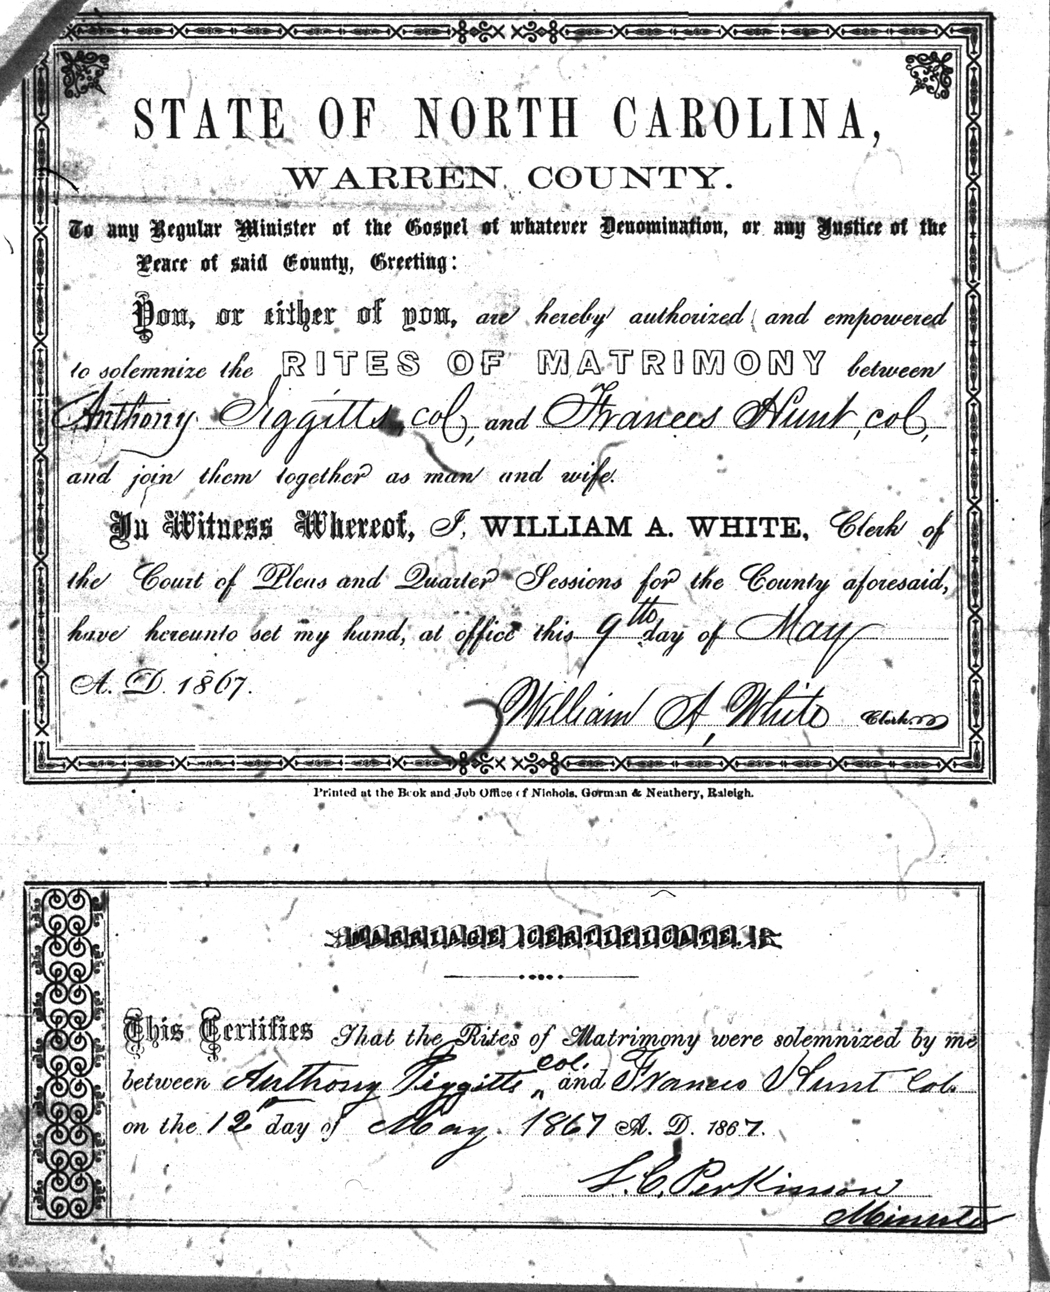 STATE OF NORTH CAROLINA,
WARREN COUNTY.
To any Regular Minister of the Gospel of whatever Denomination, or any Justice of the
Peace of said County, Greeting:
You, or either of you, are hereby authorized and empowered
to solemnize the RITES OF MATRIMONY between
Anthony Jiggitts, col, and Frances Hunt, col,
and join them together as man and wife.
In Witness Whereof, I, WILLIAM A. WHITE, Clerk of
the Court of Pleas and Quarter Sessions for the County aforesaid,
have hereunto set my hand, at office this 9th day of May
A. D. 1867.
William A, White Clerk
Printed at the Book and Job Office of Nichols, Gorman & Neathery, Raleigh.
MARRIAGE CERTIFICATE.
This Certifies That the Rites of Matrimony were solemnized by me
between Anthony Jiggitts col. and Frances Hunt Col.
on the 12 day of May. 1867 A. D. 1867.
L. C. Perkinson